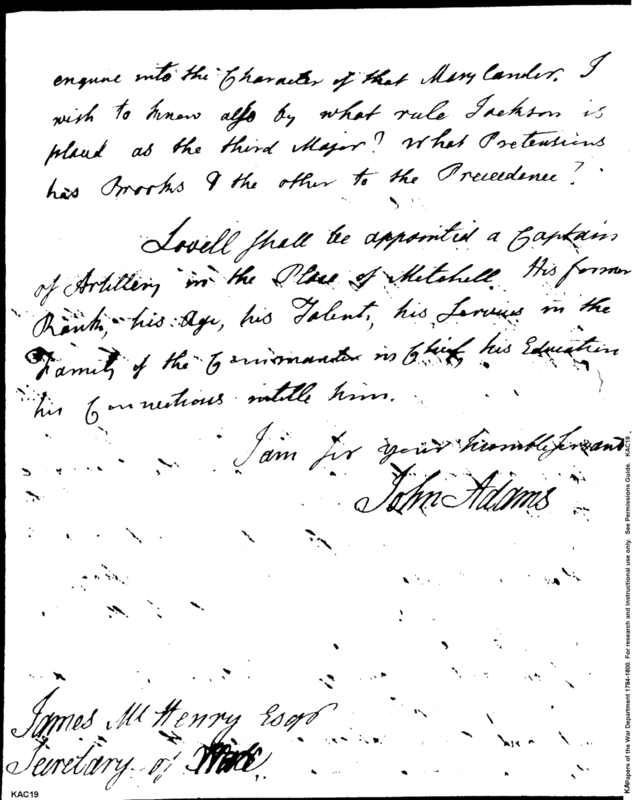 enquire into the Character of that Marylander. I
wish to know also by what rule Jackson is
placed as the third Major? What Pretensions
has Brooks & the other to the Precedence?
Lovell shall be appointed a Captain
of Artillery in the Place of Mitchell. His former
Rank, his Age, his Talents, his Services in the
Family of the Commander in Chief, his Education
his Connections intitle him.
I am Sir your humble Servant
John Adams
James McHenry Esqr
Secretary of War.
KAC19
KAPapers of the War Department 1784-1800. For research and instructional use only. See Permissions Guide. KAC19